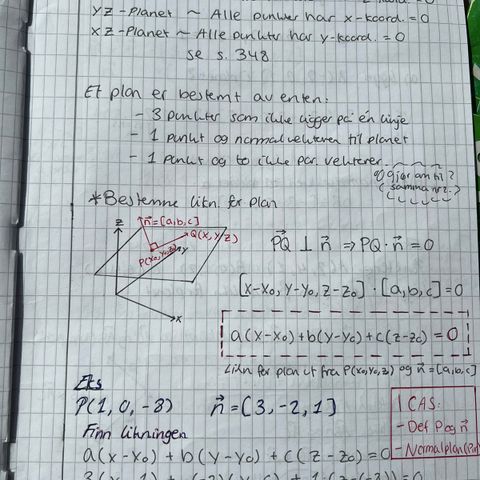 yz-Planet ~ Alle punkter har x-koord. = 0
xz-Planet ~ Alle punkter har y-koord. = 0
se s. 348
Et plan er bestemt av enten:
- 3 punkter som ikke ligger på én linje
- 1 punkt og normalvektoren til planet
- 1 punkt og to ikke par. vektorer.
gjør om til
samma nr 2.
*Bestemme likn. for plan
z
n⃗=[a,b,c]
Q(x,y,z)
P(x₀,y₀,z₀)
y
x
PQ⃗ ⊥ n⃗ ⇒ PQ · n⃗ = 0
[x-x₀, y-y₀, z-z₀] · [a,b,c] = 0
a(x-x₀) + b(y-y₀) + c(z-z₀) = 0
Likn for plan ut fra P(x₀,y₀,z) og n⃗ = [a,b,c]
Eks
P(1, 0, -3) n⃗ = [3, -2, 1]
Finn likningen
a(x-x₀) + b(y-y₀) + c(z-z₀) = 0
I CAS:
- Def P og n⃗
- Normalplan(P,n)